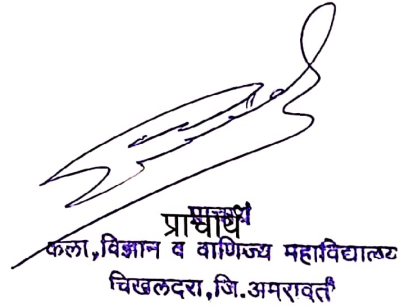 प्राचार्य
कला,विज्ञान व वाणिज्य महाविद्यालय
चिखलदरा,जि.अमरावती